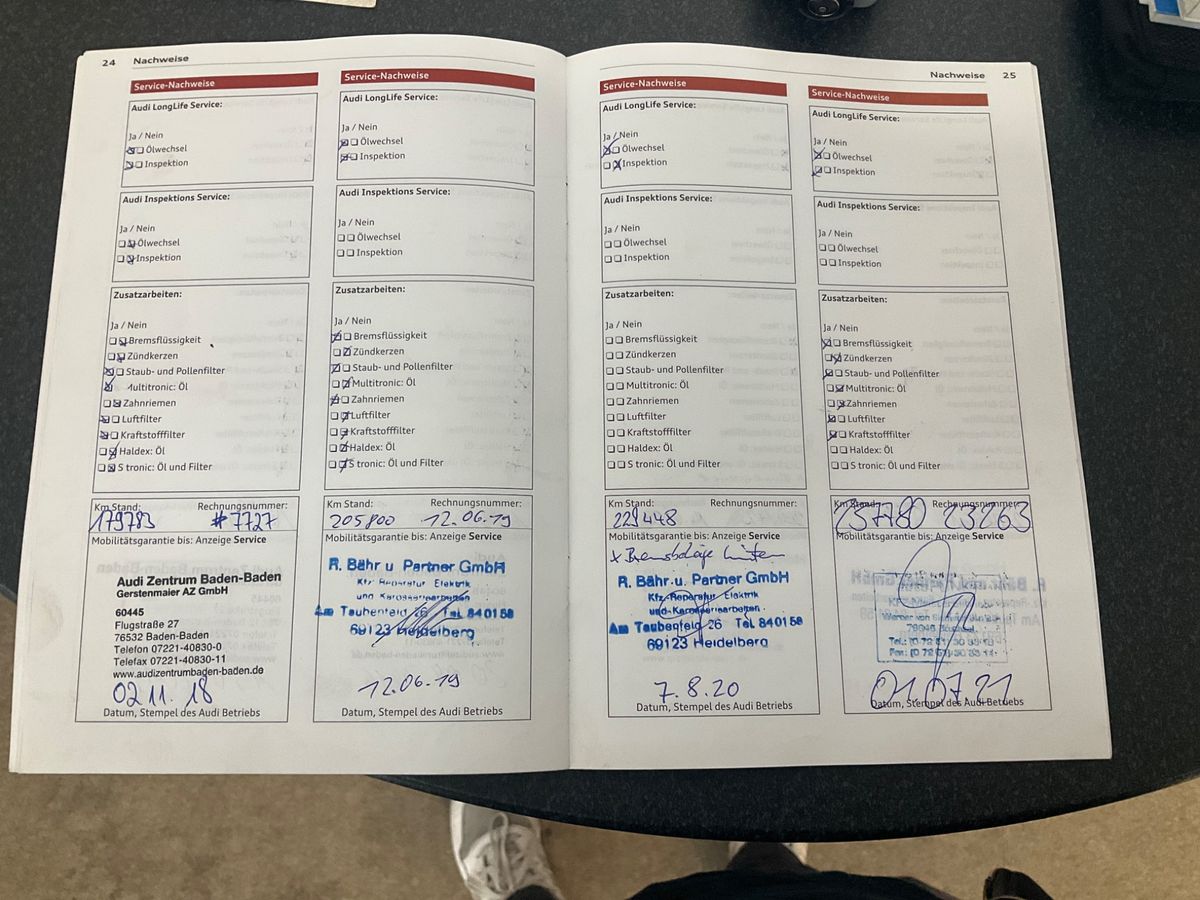 24 Nachweise
Service-Nachweise
Audi LongLife Service:
Ja / Nein
Ölwechsel
Inspektion
Audi Inspektions Service:
Ja / Nein
Ölwechsel
Inspektion
Zusatzarbeiten:
Ja / Nein
Bremsflüssigkeit
Zündkerzen
Staub- und Pollenfilter
Multitronic: Öl
Zahnriemen
Luftfilter
Kraftstofffilter
Haldex: Öl
S tronic: Öl und Filter
Km Stand: Rechnungsnummer:
179783 #7727
Mobilitätsgarantie bis: Anzeige Service
Audi Zentrum Baden-Baden
Gerstenmaier AZ GmbH
60445
Flugstraße 27
76532 Baden-Baden
Telefon 07221-40830-0
Telefax 07221-40830-11
www.audizentrumbaden-baden.de
02.11.18
Datum, Stempel des Audi Betriebs
Service-Nachweise
Audi LongLife Service:
Ja / Nein
Ölwechsel
Inspektion
Audi Inspektions Service:
Ja / Nein
Ölwechsel
Inspektion
Zusatzarbeiten:
Ja / Nein
Bremsflüssigkeit
Zündkerzen
Staub- und Pollenfilter
Multitronic: Öl
Zahnriemen
Luftfilter
Kraftstofffilter
Haldex: Öl
S tronic: Öl und Filter
Km Stand: Rechnungsnummer:
205800 12.06.19
Mobilitätsgarantie bis: Anzeige Service
R. Bähr u. Partner GmbH
Kfz-Reparatur Elektrik
und Karosseriearbeiten
Am Taubenfeld 26 Tel. 840158
69123 Heidelberg
12.06.19
Datum, Stempel des Audi Betriebs
Nachweise 25
Service-Nachweise
Audi LongLife Service:
Ja / Nein
Ölwechsel
Inspektion
Audi Inspektions Service:
Ja / Nein
Ölwechsel
Inspektion
Zusatzarbeiten:
Ja / Nein
Bremsflüssigkeit
Zündkerzen
Staub- und Pollenfilter
Multitronic: Öl
Zahnriemen
Luftfilter
Kraftstofffilter
Haldex: Öl
S tronic: Öl und Filter
Km Stand: Rechnungsnummer:
229448
Mobilitätsgarantie bis: Anzeige Service
x Bremsbeläge hinten
R. Bähr u. Partner GmbH
Kfz-Reparatur Elektrik
und Karosseriearbeiten
Am Taubenfeld 26 Tel. 840158
69123 Heidelberg
7.8.20
Datum, Stempel des Audi Betriebs
Service-Nachweise
Audi LongLife Service:
Ja / Nein
Ölwechsel
Inspektion
Audi Inspektions Service:
Ja / Nein
Ölwechsel
Inspektion
Zusatzarbeiten:
Ja / Nein
Bremsflüssigkeit
Zündkerzen
Staub- und Pollenfilter
Multitronic: Öl
Zahnriemen
Luftfilter
Kraftstofffilter
Haldex: Öl
S tronic: Öl und Filter
Km Stand: Rechnungsnummer:
237780 23263
Mobilitätsgarantie bis: Anzeige Service
01.07.21
Datum, Stempel des Audi Betriebs